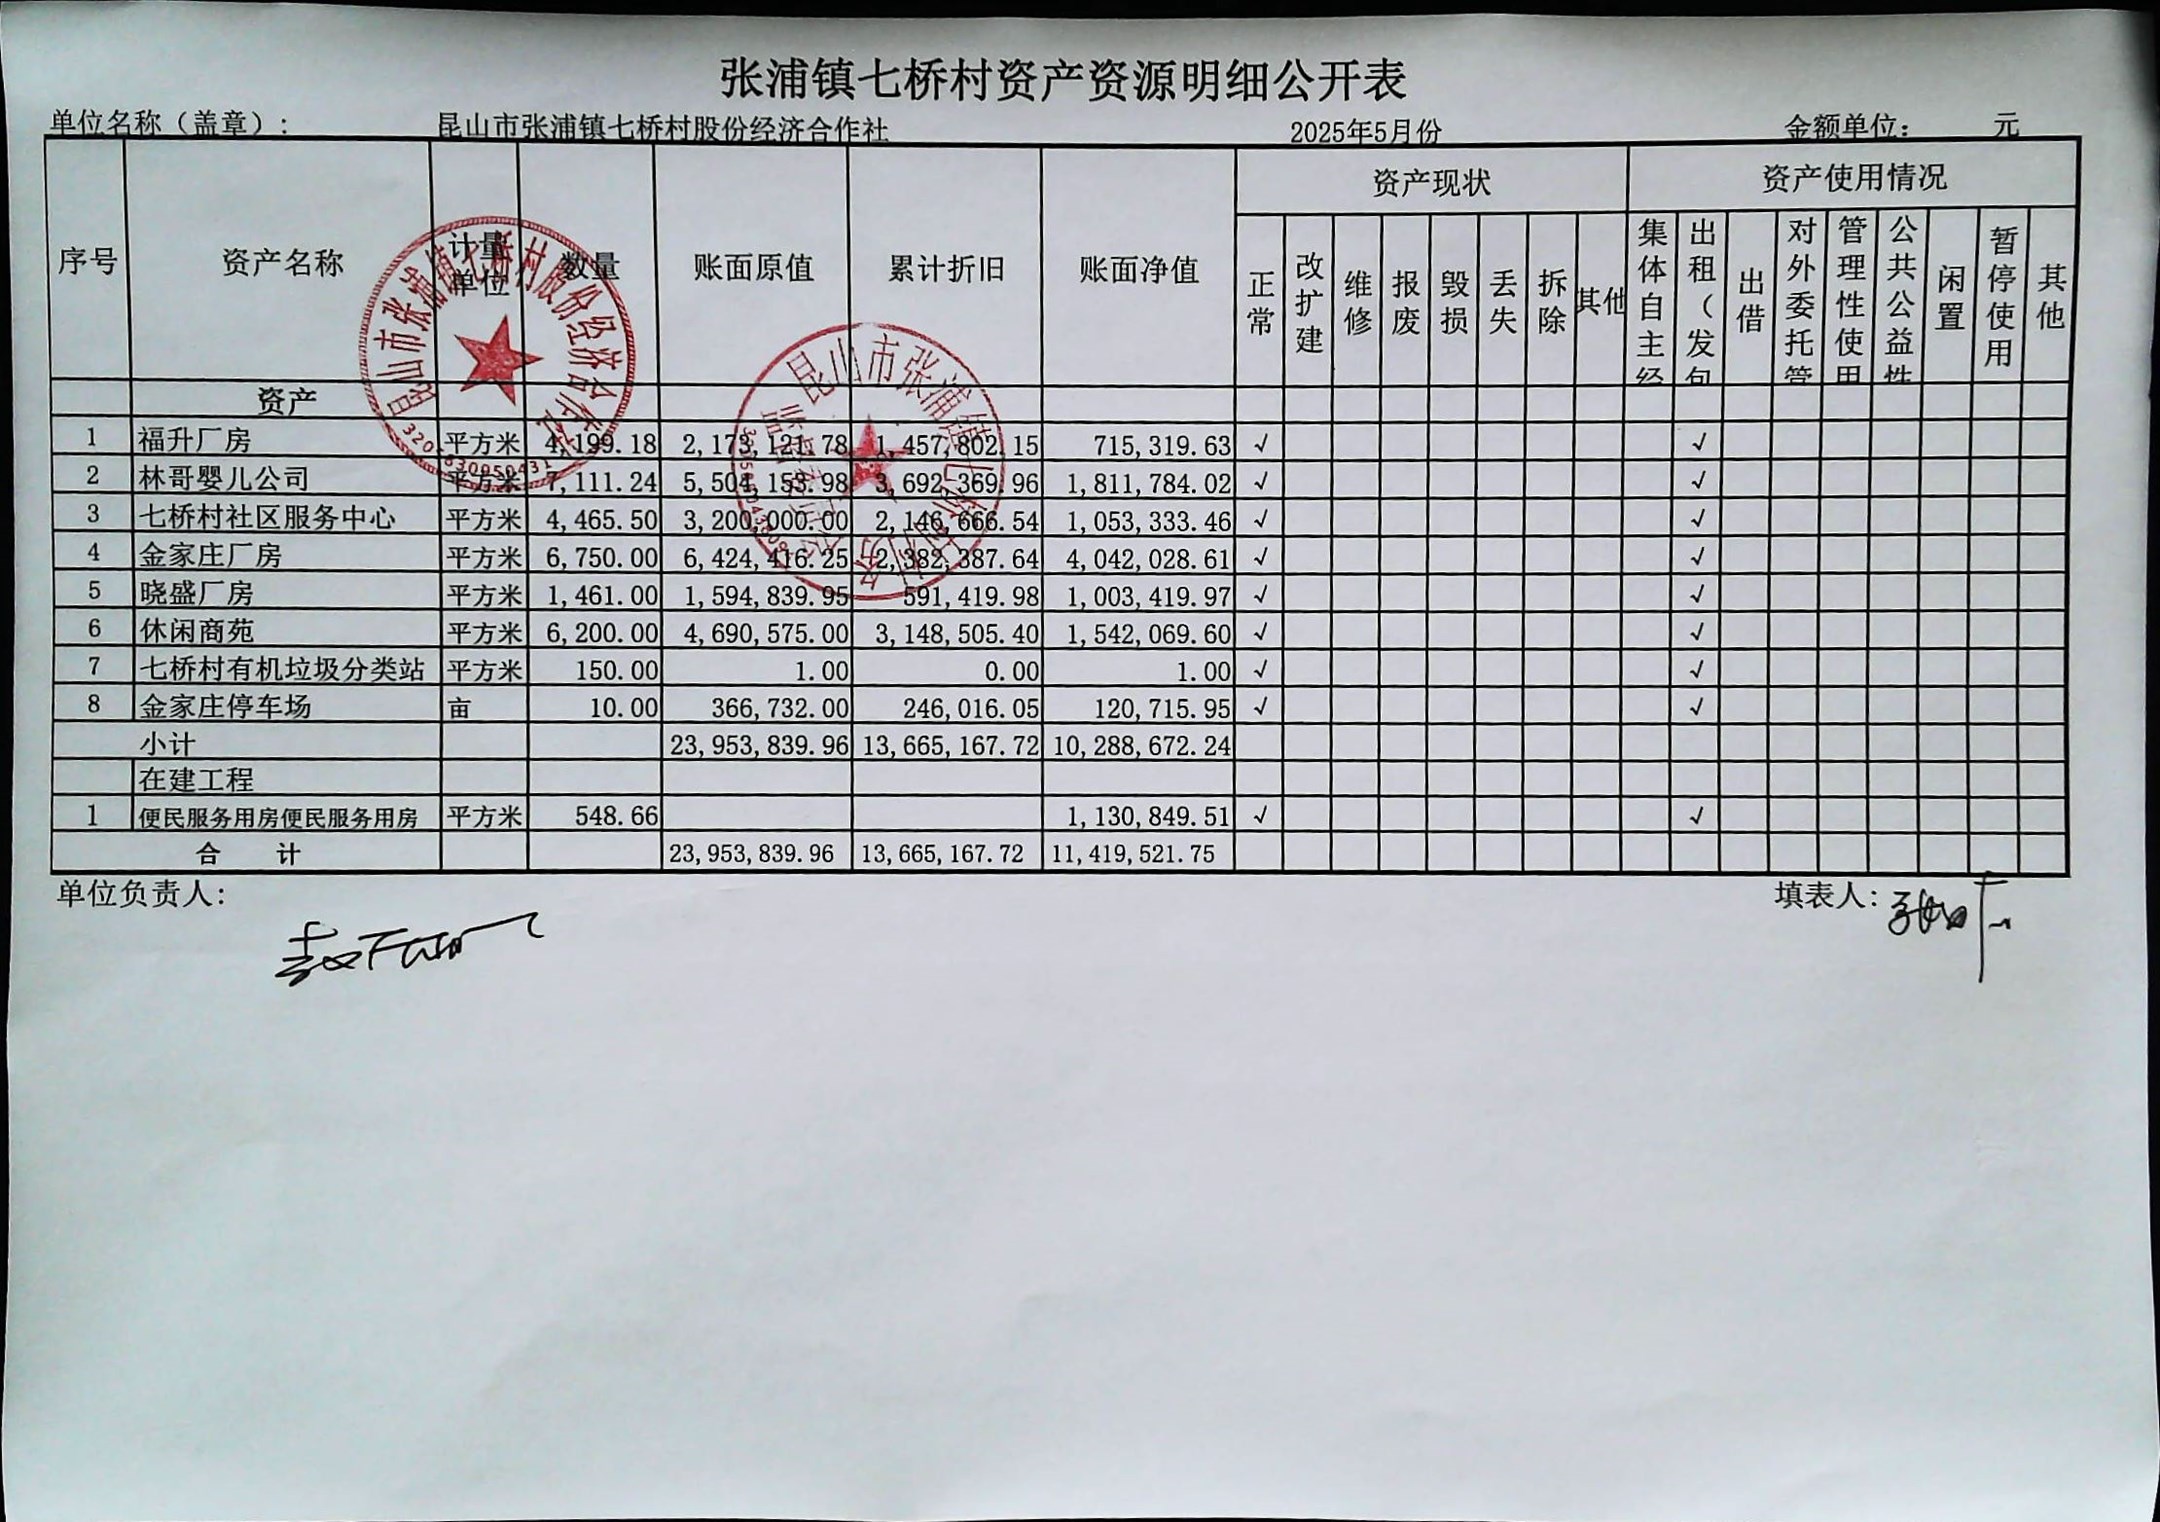 张浦镇七桥村资产资源明细公开表
单位名称（盖章）： 昆山市张浦镇七桥村股份经济合作社 2025年5月份 金额单位： 元
序号 资产名称 计量单位 数量 账面原值 累计折旧 账面净值 资产现状 资产使用情况
正常 改扩建 维修 报废 毁损 丢失 拆除 其他 集体自主经 出租（发包 出借 对外委托管 管理性使用 公共公益性 闲置 暂停使用 其他
资产
1 福升厂房 平方米 4,199.18 2,173,121.78 1,457,802.15 715,319.63 √ √
2 林哥婴儿公司 平方米 7,111.24 5,504,153.98 3,692,369.96 1,811,784.02 √ √
3 七桥村社区服务中心 平方米 4,465.50 3,200,000.00 2,146,666.54 1,053,333.46 √ √
4 金家庄厂房 平方米 6,750.00 6,424,416.25 2,382,387.64 4,042,028.61 √ √
5 晓盛厂房 平方米 1,461.00 1,594,839.95 591,419.98 1,003,419.97 √ √
6 休闲商苑 平方米 6,200.00 4,690,575.00 3,148,505.40 1,542,069.60 √ √
7 七桥村有机垃圾分类站 平方米 150.00 1.00 0.00 1.00 √ √
8 金家庄停车场 亩 10.00 366,732.00 246,016.05 120,715.95 √ √
小计 23,953,839.96 13,665,167.72 10,288,672.24
在建工程
1 便民服务用房便民服务用房 平方米 548.66 1,130,849.51 √ √
合 计 23,953,839.96 13,665,167.72 11,419,521.75
单位负责人： 填表人：
昆山市张浦镇七桥村股份经济合作社
昆山市张浦镇七桥村